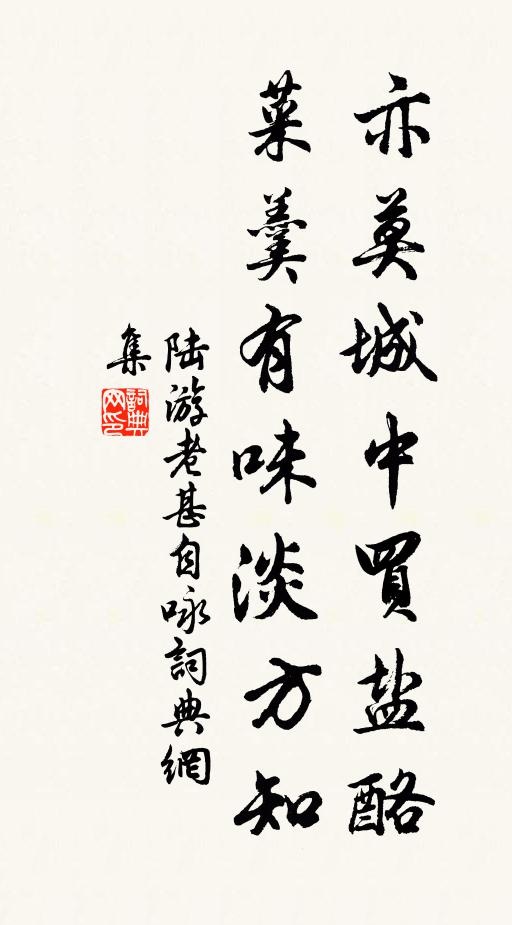 亦莫城中買盐酪
菜羹有味淡方知
陆游老甚自咏詞典網
集
詞典
网印